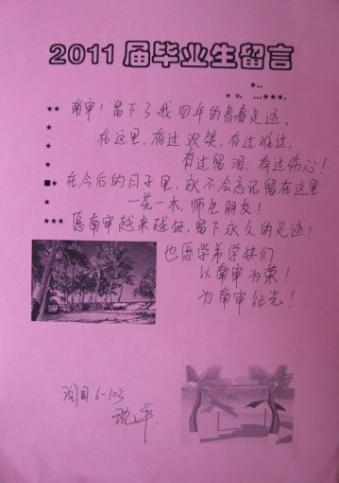 2011届毕业生留言
南审!留下了我四年的青春足迹,
在这里,有过欢笑,有过难过,
有过留泪,有过伤心!
在今后的日子里,永不会忘记留在这里
一花一木,师生朋友!
愿南审越来越好,留下永久的足迹!
也愿学弟学妹们
以南审为荣!
为南审征光!
润园6-103